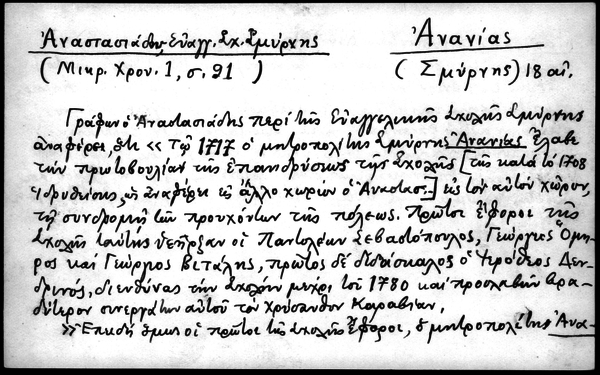 Ἀναστασιάδης, Εὐαγγ. Σχ. Σμύρνης
Ἀνανίας
(Μικρ. Χρον. 1, σ. 91)
(Σμύρνης) 18 αἰ.
Γράφων ὁ Ἀναστασιάδης περὶ τῆς Εὐαγγελικῆς Σχολῆς Σμύρνης
ἀναφέρει, ὅτι << Τῷ 1717 ὁ μητροπολίτης Σμύρνης Ἀνανίας ἔλαβε
τὴν πρωτοβουλίαν τῆς ἐπανιδρύσεως τῆς Σχολῆς [τῆς κατὰ τὸ 1708
ἱδρυθείσης, ὡς ἀναφέρει εἰς ἄλλο χωρίον ὁ Ἀναστασ.] εἰς τὸν αὐτὸν χῶρον,
τῇ συνδρομῇ τῶν προυχόντων τῆς πόλεως. Πρῶτοι ἔφοροι τῆς
Σχολῆς ταύτης ὑπῆρξαν οἱ Πανταλέων Σεβαστόπουλος, Γεώργιος Ὅμη-
ρος καὶ Γεώργιος Βιτάλης, πρῶτος δὲ διδάσκαλος ὁ Ἱερόθεος Δεν-
δρινός, διευθύνας τὴν Σχολὴν μέχρι τοῦ 1780 καὶ προσλαβὼν βρα-
δύτερον συνεργάτην αὐτοῦ τὸν Χρύσανθον Καραβίαν.
>> Ἐπειδὴ ὅμως οἱ πρῶτοι τῆς Σχολῆς ἔφοροι, ὁ μητροπολίτης Ἀνα-